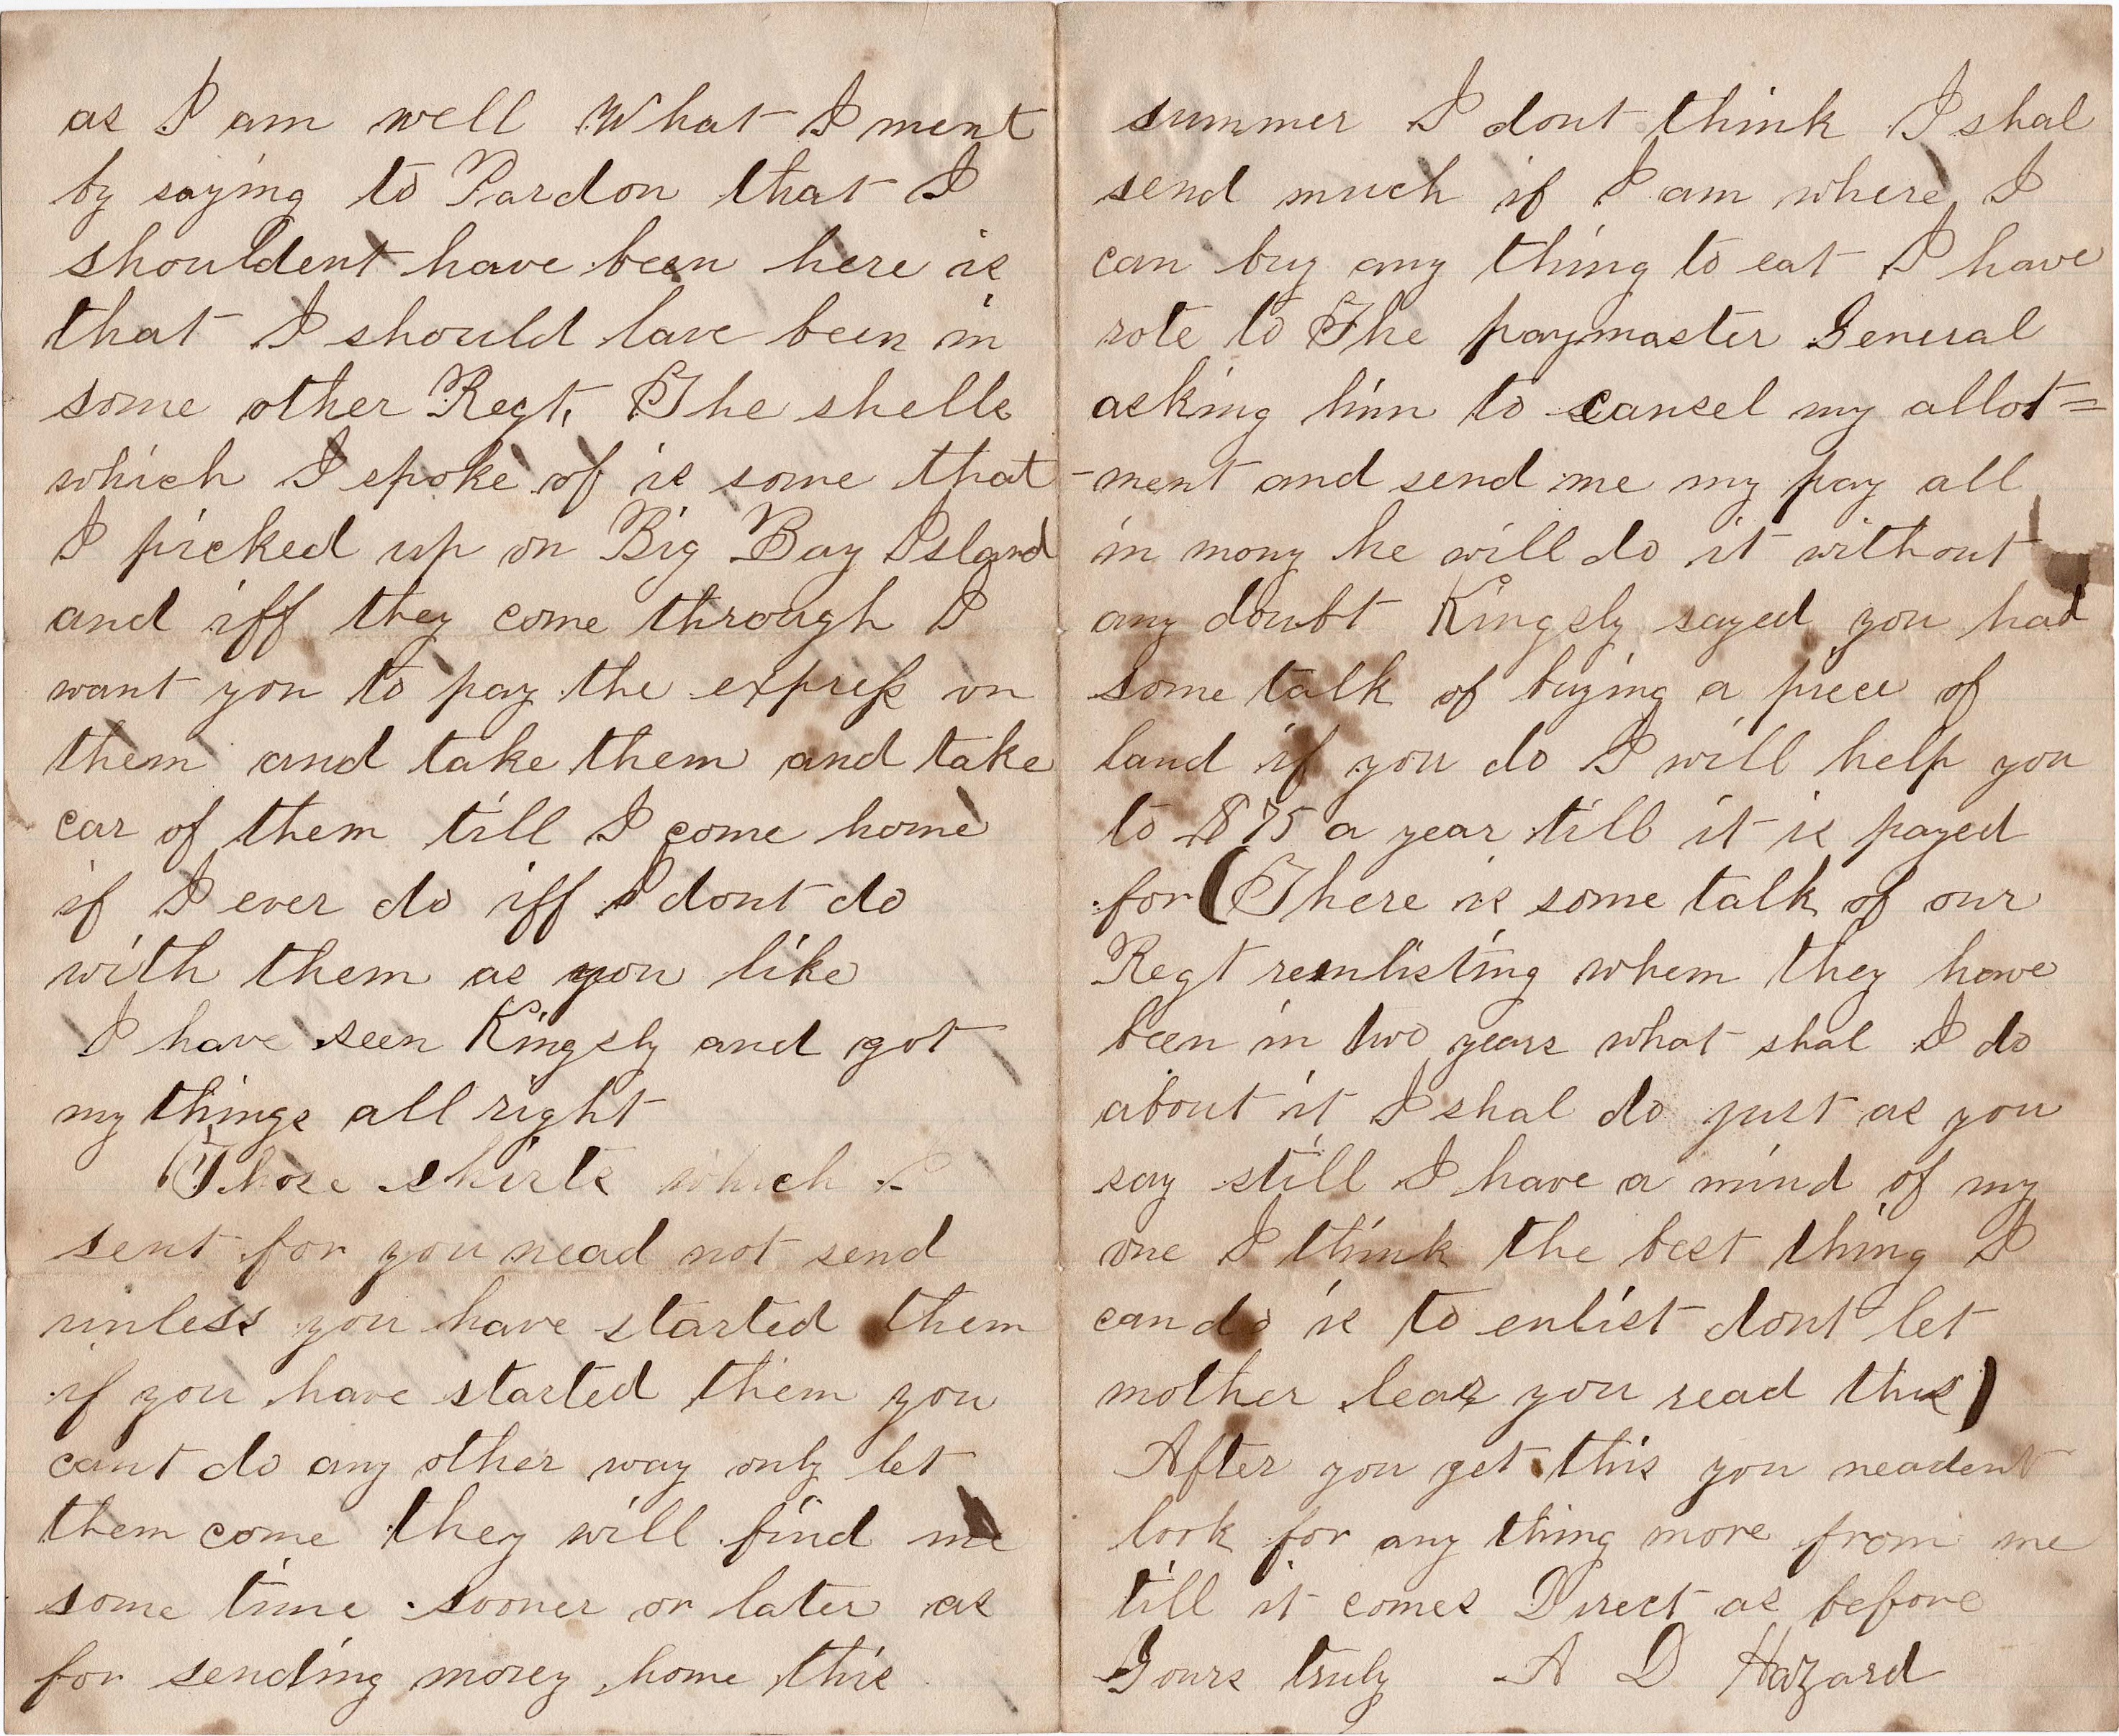 as I am well What I ment
by saying to Pardon that I
shouldent have been here is
that I should lave been in
some other Regt. The shells
which I spoke of is some that
I picked up on Big Bay Island
and iff they come through I
want you to pay the express on
them and take them and take
car of them till I come home
if I ever do iff I dont do
with them as you like
I have seen Kingsly and got
my things all right
(Those shirts which I
sent for you nead not send
unless you have started them
if you have started them you
cant do any other way only let
them come they will find me
some time sooner or later as
for sending money home this
summer I dont think I shal
send much if I am where I
can buy any thing to eat I have
rote to The paymaster General
asking him to cansel my allot=
-ment and send me my pay all
in mony he will do it without
any doubt Kingsly sayed you had
some talk of buying a piece of
land if you do I will help you
to $75 a year till it is payed
for (There is some talk of our
Regt reenlisting when they have
been in two years what shal I do
about it I shal do just as you
say still I have a mind of my
one I think the best thing I
can do is to enlist dont let
mother lear you read this)
After you get this you neadent
look for any thing more from me
till it comes Direct as before
Yours truly A D Hazard